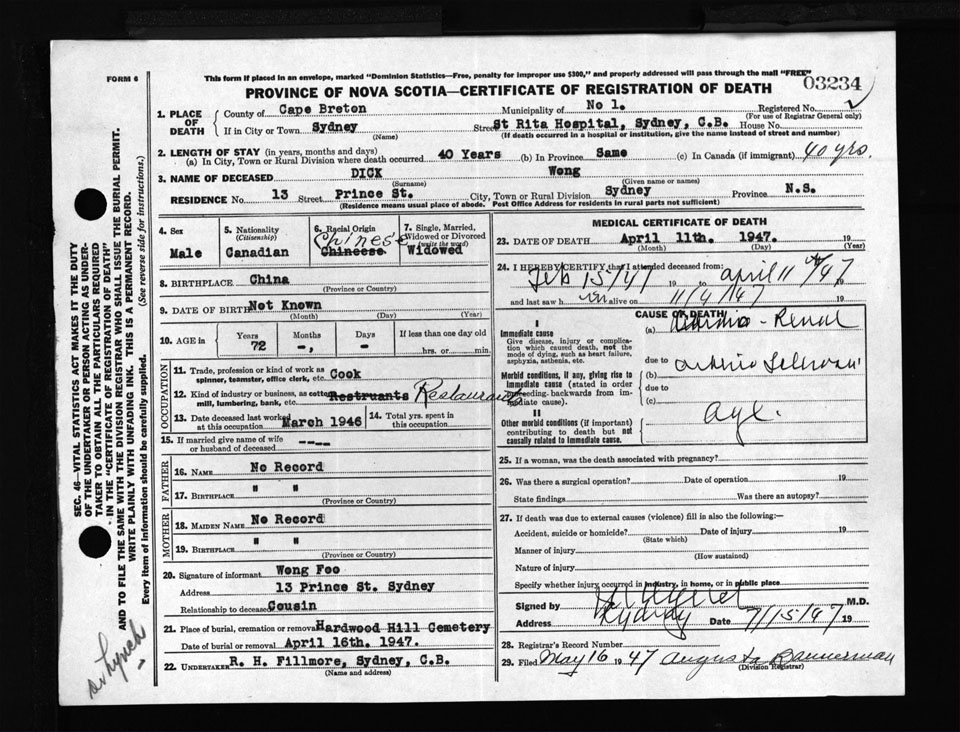 FORM 6
This form if placed in an envelope, marked "Dominion Statistics—Free, penalty for improper use $300," and properly addressed will pass through the mail "FREE"
03234
PROVINCE OF NOVA SCOTIA—CERTIFICATE OF REGISTRATION OF DEATH
1. PLACE OF DEATH
County of Cape Breton Municipality of No 1. Registered No.
(For use of Registrar General only)
If in City or Town Sydney Street St Rita Hospital, Sydney, C.B. House No.
(Name) (If death occurred in a hospital or institution, give the name instead of street and number)
2. LENGTH OF STAY (in years, months and days)
(a) In City, Town or Rural Division where death occurred 40 Years (b) In Province Same (c) In Canada (if immigrant) 40 yrs.
3. NAME OF DECEASED DICK Wong
(Surname) (Given name or names)
RESIDENCE No. 13 Street Prince St. City, Town or Rural Division Sydney Province N.S.
(Residence means usual place of abode. Post Office Address for residents in rural parts not sufficient)
4. Sex
Male
5. Nationality
(Citizenship)
Canadian
6. Racial Origin
Chinese
Chineese
7. Single, Married, Widowed or Divorced
(write the word)
Widowed
8. BIRTHPLACE China
(Province or Country)
9. DATE OF BIRTH Not Known
(Month) (Day) (Year)
10. AGE in
Years Months Days If less than one day old
72 -, - hrs. or min.
OCCUPATION
11. Trade, profession or kind of work as
spinner, teamster, office clerk, etc. Cook
12. Kind of industry or business, as cotton
mill, lumbering, bank, etc. Restruants Restaurant
13. Date deceased last worked
at this occupation March 1946
14. Total yrs. spent in
this occupation
15. If married give name of wife
or husband of deceased ----
FATHER
16. NAME No Record
17. BIRTHPLACE " "
(Province or Country)
MOTHER
18. MAIDEN NAME No Record
19. BIRTHPLACE " "
(Province or Country)
20. Signature of informant Wong Foo
Address 13 Prince St. Sydney
Relationship to deceased Cousin
21. Place of burial, cremation or removal Hardwood Hill Cemetery
Date of burial or removal April 16th. 1947.
22. UNDERTAKER R. H. Fillmore, Sydney, C.B.
(Name and address)
MEDICAL CERTIFICATE OF DEATH
23. DATE OF DEATH April 11th. 1947. 19
(Month) (Day) (Year)
24. I HEREBY CERTIFY that I attended deceased from:
Feb 15/47 19 to april 11 19/47
and last saw h im alive on 11/4/47 19
CAUSE OF DEATH
I
Immediate cause
Give disease, injury or complication which caused death, not the mode of dying, such as heart failure, asphyxia, asthenia, etc.
(a) Cardio-Renal
due to
Morbid conditions, if any, giving rise to immediate cause (stated in order proceeding backwards from immediate cause).
(b)
due to
(c)
II
Other morbid conditions (if important) contributing to death but not causally related to immediate cause.
Age.
25. If a woman, was the death associated with pregnancy?
26. Was there a surgical operation? Date of operation 19
State findings Was there an autopsy?
27. If death was due to external causes (violence) fill in also the following:—
Accident, suicide or homicide? Date of injury 19
(State which)
Manner of injury
(How sustained)
Nature of injury
Specify whether injury occurred in industry, in home, or in public place
Signed by M.D.
Address Sydney Date 7/15/47 19
28. Registrar's Record Number
29. Filed May 16 1947 Augusta Bannerman
(Division Registrar)
SEC. 46—VITAL STATISTICS ACT MAKES IT THE DUTY
OF THE UNDERTAKER OR PERSON ACTING AS UNDER-
TAKER TO OBTAIN ALL THE PARTICULARS REQUIRED
IN THE "CERTIFICATE OF REGISTRATION OF DEATH"
AND TO FILE THE SAME WITH THE DIVISION REGISTRAR WHO SHALL ISSUE THE BURIAL PERMIT.
WRITE PLAINLY WITH UNFADING INK. THIS IS A PERMANENT RECORD.
Every item of information should be carefully supplied. (See reverse side for instructions.)
Dr Lynch